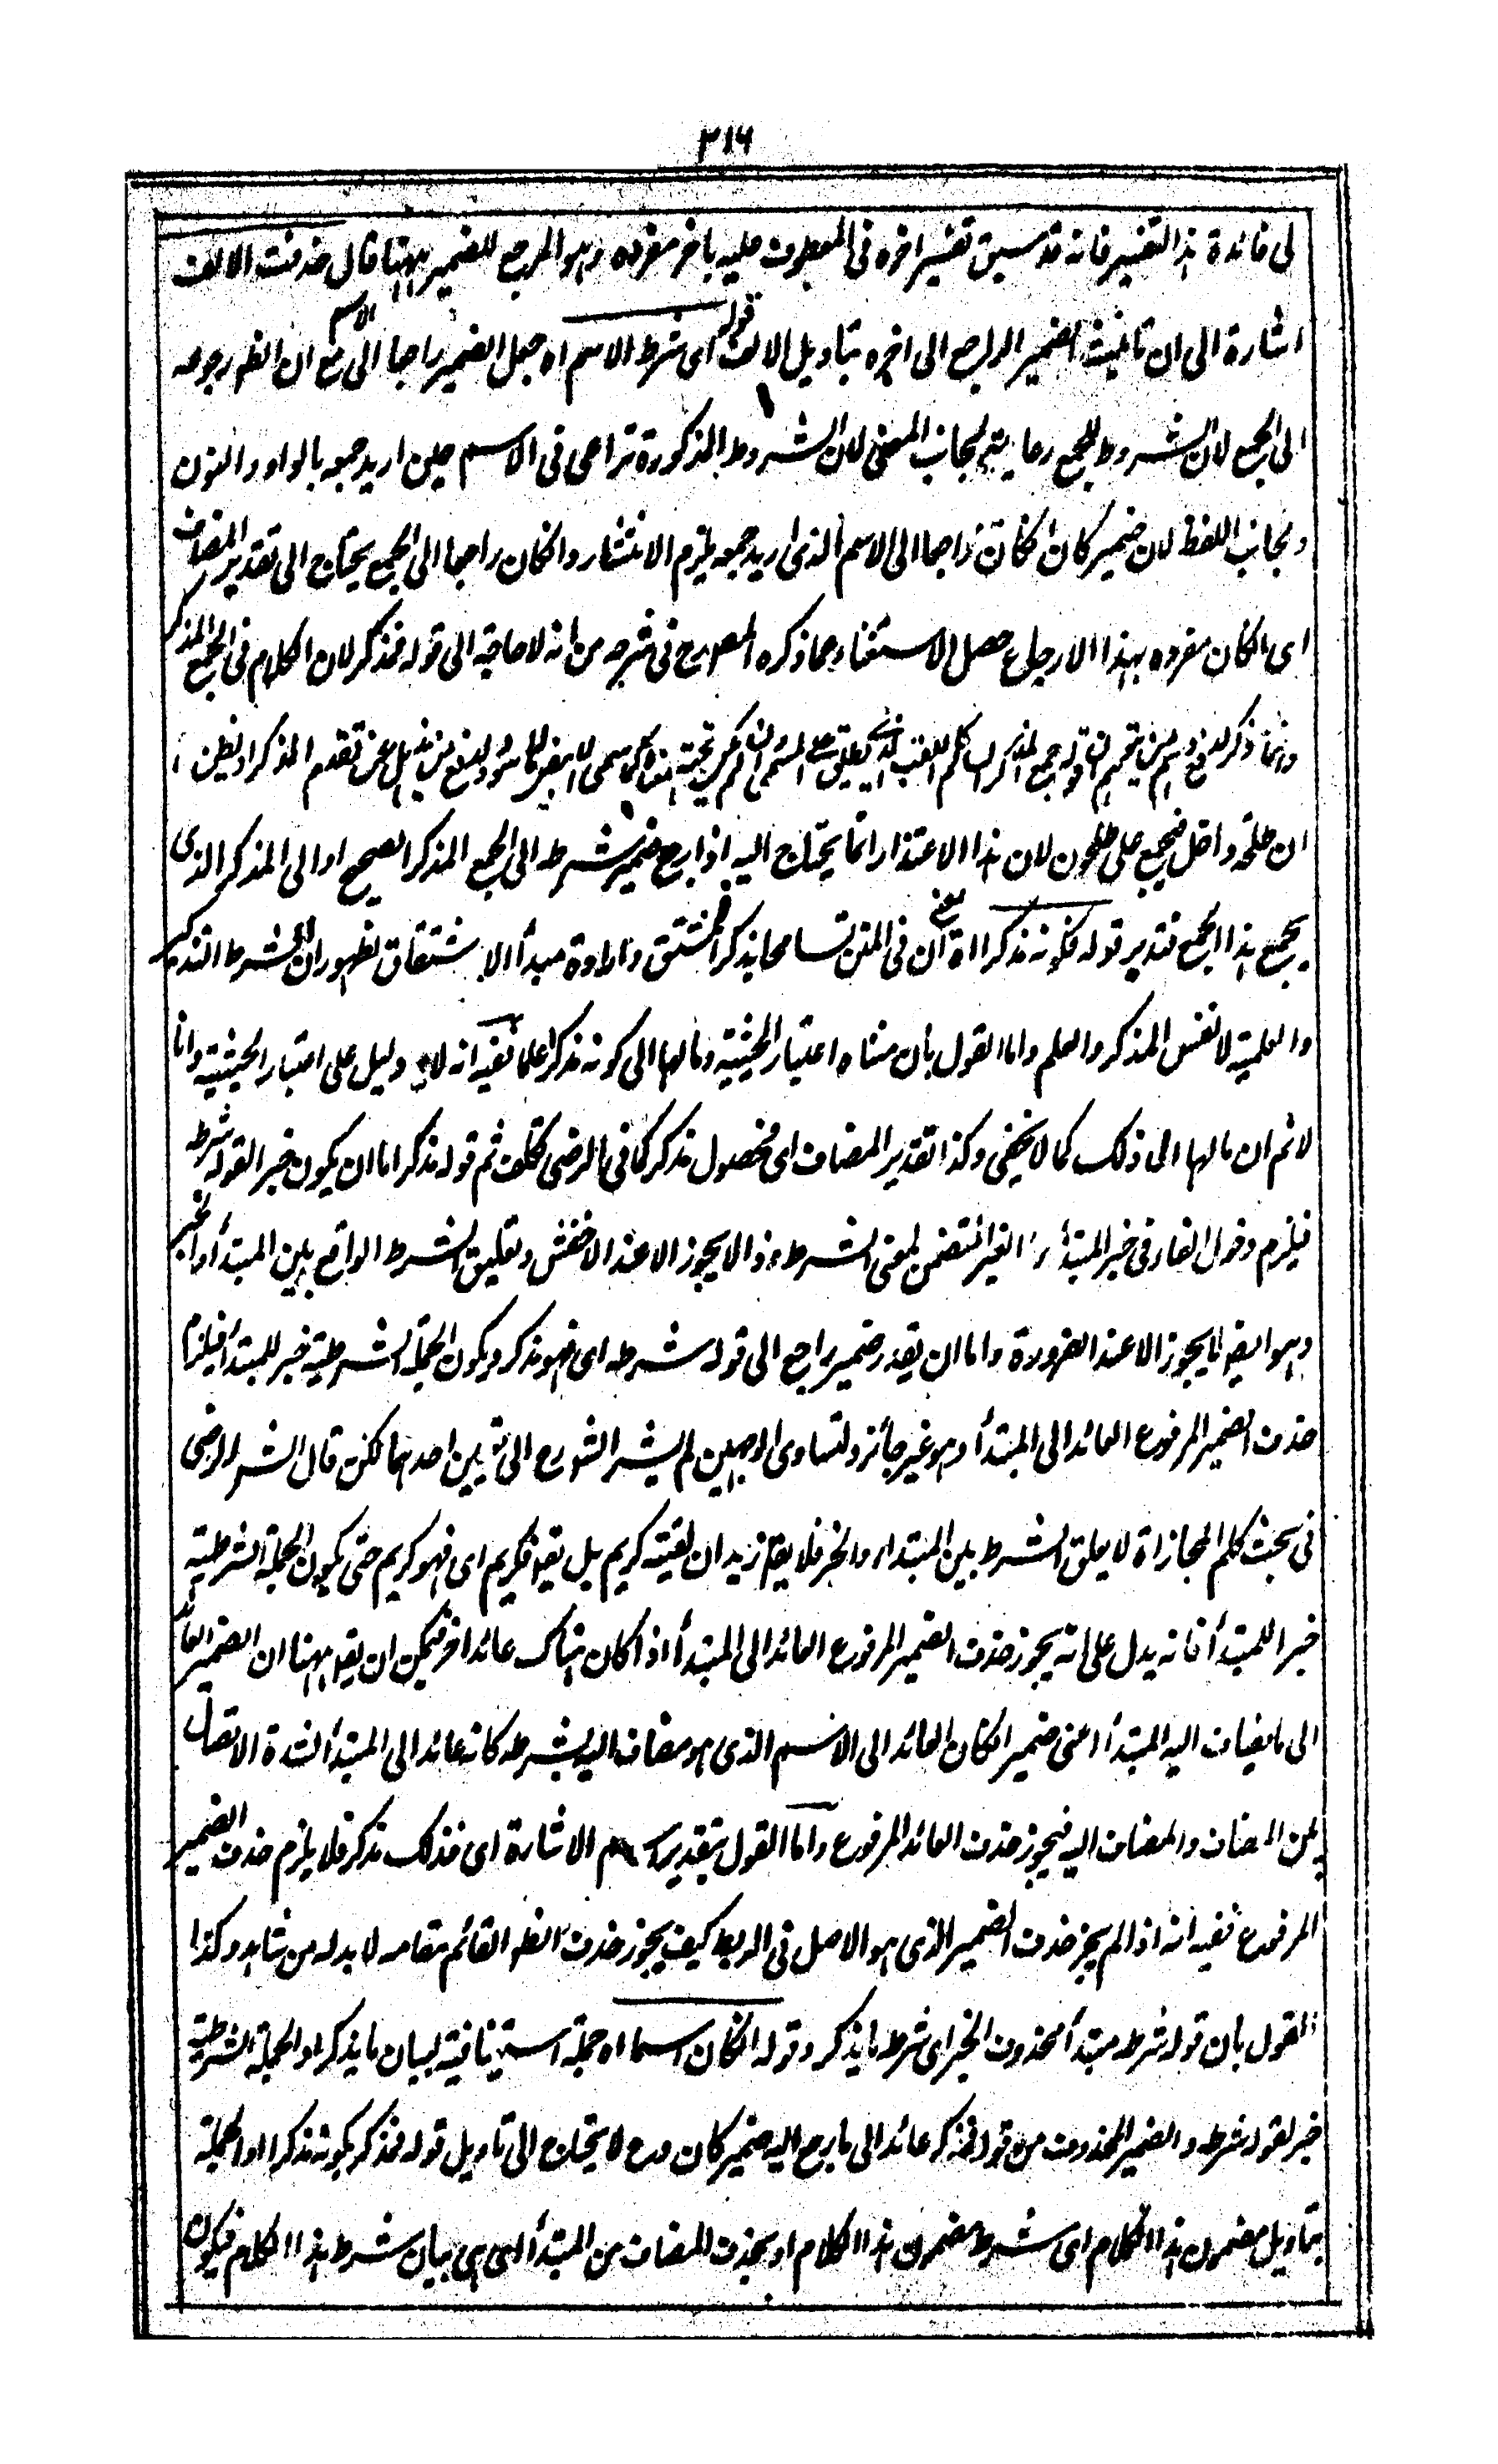 ٣١٦
لى فائدة هذا التفسير فانه قد سبق تفسير اخره فى المعطوف عليه باخر مفرده وهو المرجع للضمير ههنا قال حذفت الالف
اشارة الى ان تانيث الضمير الراجع الى اخره بتاويل الالف قوله اى شرط الاسم اه جعل الضمير راجعا الى الاسم مع ان الظ رجوعه
الى الجمع لان الشروط للجمع رعاية لجانب المعنى لان الشروط المذكورة تراعى فى الاسم حين اريد جمعه بالواو والنون
وبجانب اللفظ لان ضمير كان ان كان راجعا الى الاسم الذى اريد جمعه يلزم الانتشار وانكان راجعا الى الجمع يحتاج الى تقدير المضاف
اى انكان مفرده بهذا الارجاع حصل الاستغناء عما ذكره المص رح فى شرحه من انه لا حاجة الى قوله فمذكر لان الكلام فى الجمع المذكر
وانما ذكر لدفع وهم من يتوهم ان قوله جمع المذكر السالم كاللقب الذى يطلق على المسمى وان لم يكن تحته معناه كما سمى الابيض بالاسود او لدفع من يذهل عن تقدم المذكر او يظن
ان طلحة داخل فيجمع على طلحون لان هذا الاعتذار انما يحتاج اليه اذا رجع ضمير شرطه الى الجمع المذكر الصحيح او الى المذكر الذى
يجمع هذا الجمع فتدبر قوله فكونه مذكرا اه يعنى ان فى المتن تسامحا بذكر المشتق وارادة مبدأ الاشتقاق لظهور ان الشرط التذكير
والعلمية لا نفس المذكر والعلم واما القول بان معناه اعتبار الحيثية ومالها الى كونه مذكرا علما ففيه انه لا دليل على اعتبار الحيثية وانا
لا ثم ان مالها الى ذلك كما لا يخفى وكذا تقدير المضاف اى فحصول مذكر كما فى الرضى تكلف ثم قوله مذكر اما ان يكون خبرا لقوله شرطه
فيلزم دخول الفاء فى خبر المبتدأ الغير المتضمن لمعنى الشرط وذا لا يجوز الا عند الاخفش وتعليق الشرط الواقع بين المبتدأ والخبر
وهو ايضا لا يجوز الا عند الضرورة واما ان يقدر ضمير راجع الى قوله شرطه اى فهو مذكر ويكون الجملة الشرطية خبر للمبتدأ فيلزم
حذف الضمير المرفوع العائد الى المبتدأ وهو غير جائز ولتساوى الوجهين لم يشر الشرح الى تعيين احدهما لكن قال الشيخ الرضى
فى بحث كلم المجازاة لا يعلق الشرط بين المبتداء والخبر فلا يقال زيد ان لقيته كريم بل يقال فكريم اى فهو كريم حتى يكون الجملة الشرطية
خبرا للمبتدأ فانه يدل على انه يجوز حذف الضمير المرفوع العائد الى المبتدأ اذا كان هناك عائد اخر فيمكن ان يقال ههنا ان الضمير العائد
الى ما يضاف اليه المبتدأ اعنى ضمير انكان العائد الى الاسم الذى هو مضاف اليه لشرطه كانه عائد الى المبتدأ لشدة الاتصال
بين المضاف والمضاف اليه فيجوز حذف العائد المرفوع واما القول بتقدير اسم الاشارة اى فذلك مذكر فلا يلزم حذف الضمير
المرفوع ففيه انه اذا لم يجز حذف الضمير الذى هو الاصل فى الربط كيف يجوز حذف الظ القائم مقامه لا بد له من شاهد وكذا
القول بان قوله شرطه مبتدأ محذوف الخبر اى شرطه ما يذكر وقوله انكان اسما اه جملة استينافية لبيان ما يذكر او الجملة الشرطية
خبر لقوله شرطه والضمير المحذوف من قوله فمذكر عائد الى ما رجع اليه ضمير كان وح لا يحتاج الى تاويل قوله فمذكر بكونه مذكرا او الجملة
بتاويل مضمون هذا الكلام اى شرطه مضمون هذا الكلام او بحذف المضاف من المبتدأ اى بيان شرطه هذا الكلام فيكون